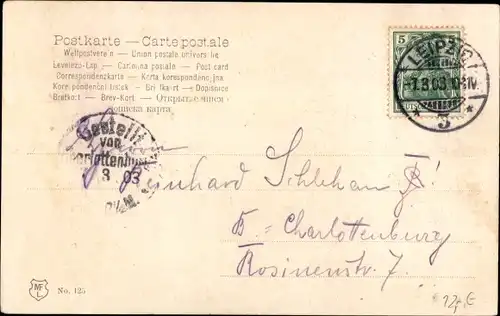 Postkarte — Cartepostale
Weltpostverein — Union postale universelle
Levelező-Lap — Cartolina postale — Post card
Correspondenzkarte — Karta korespondencyjna
Korespondenční lístek — Brefkort — Dopisnice
Bratkort — Brev-Kort — Открытое письмо
Дописна карта
5
LEIPZIG
1.3.03.
3
Bestellt
von
Charlottenburg
3 03
Schlehan
B = Charlottenburg
Rosinenstr. 7.
No. 125
12,- €